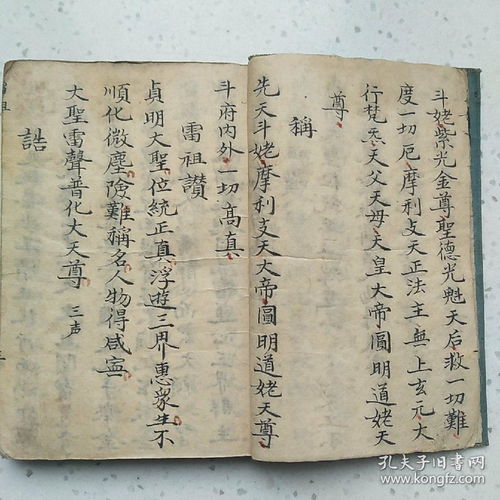 斗姥紫光金尊聖德光魁天后救一切難
度一切厄摩利支天正法主無上玄元大
行梵炁天父天母天皇大帝圓明道姥天
尊
稱
先天斗姥摩利支天大帝圓明道姥天尊
斗府內外一切高真
雷祖讚
貞明大聖位統正真浮遊三界惠眾生不
順化微塵險難稱名人物得咸寍
大聖雷聲普化大天尊 三声
誥
孔夫子旧书网
www.kongfz.com